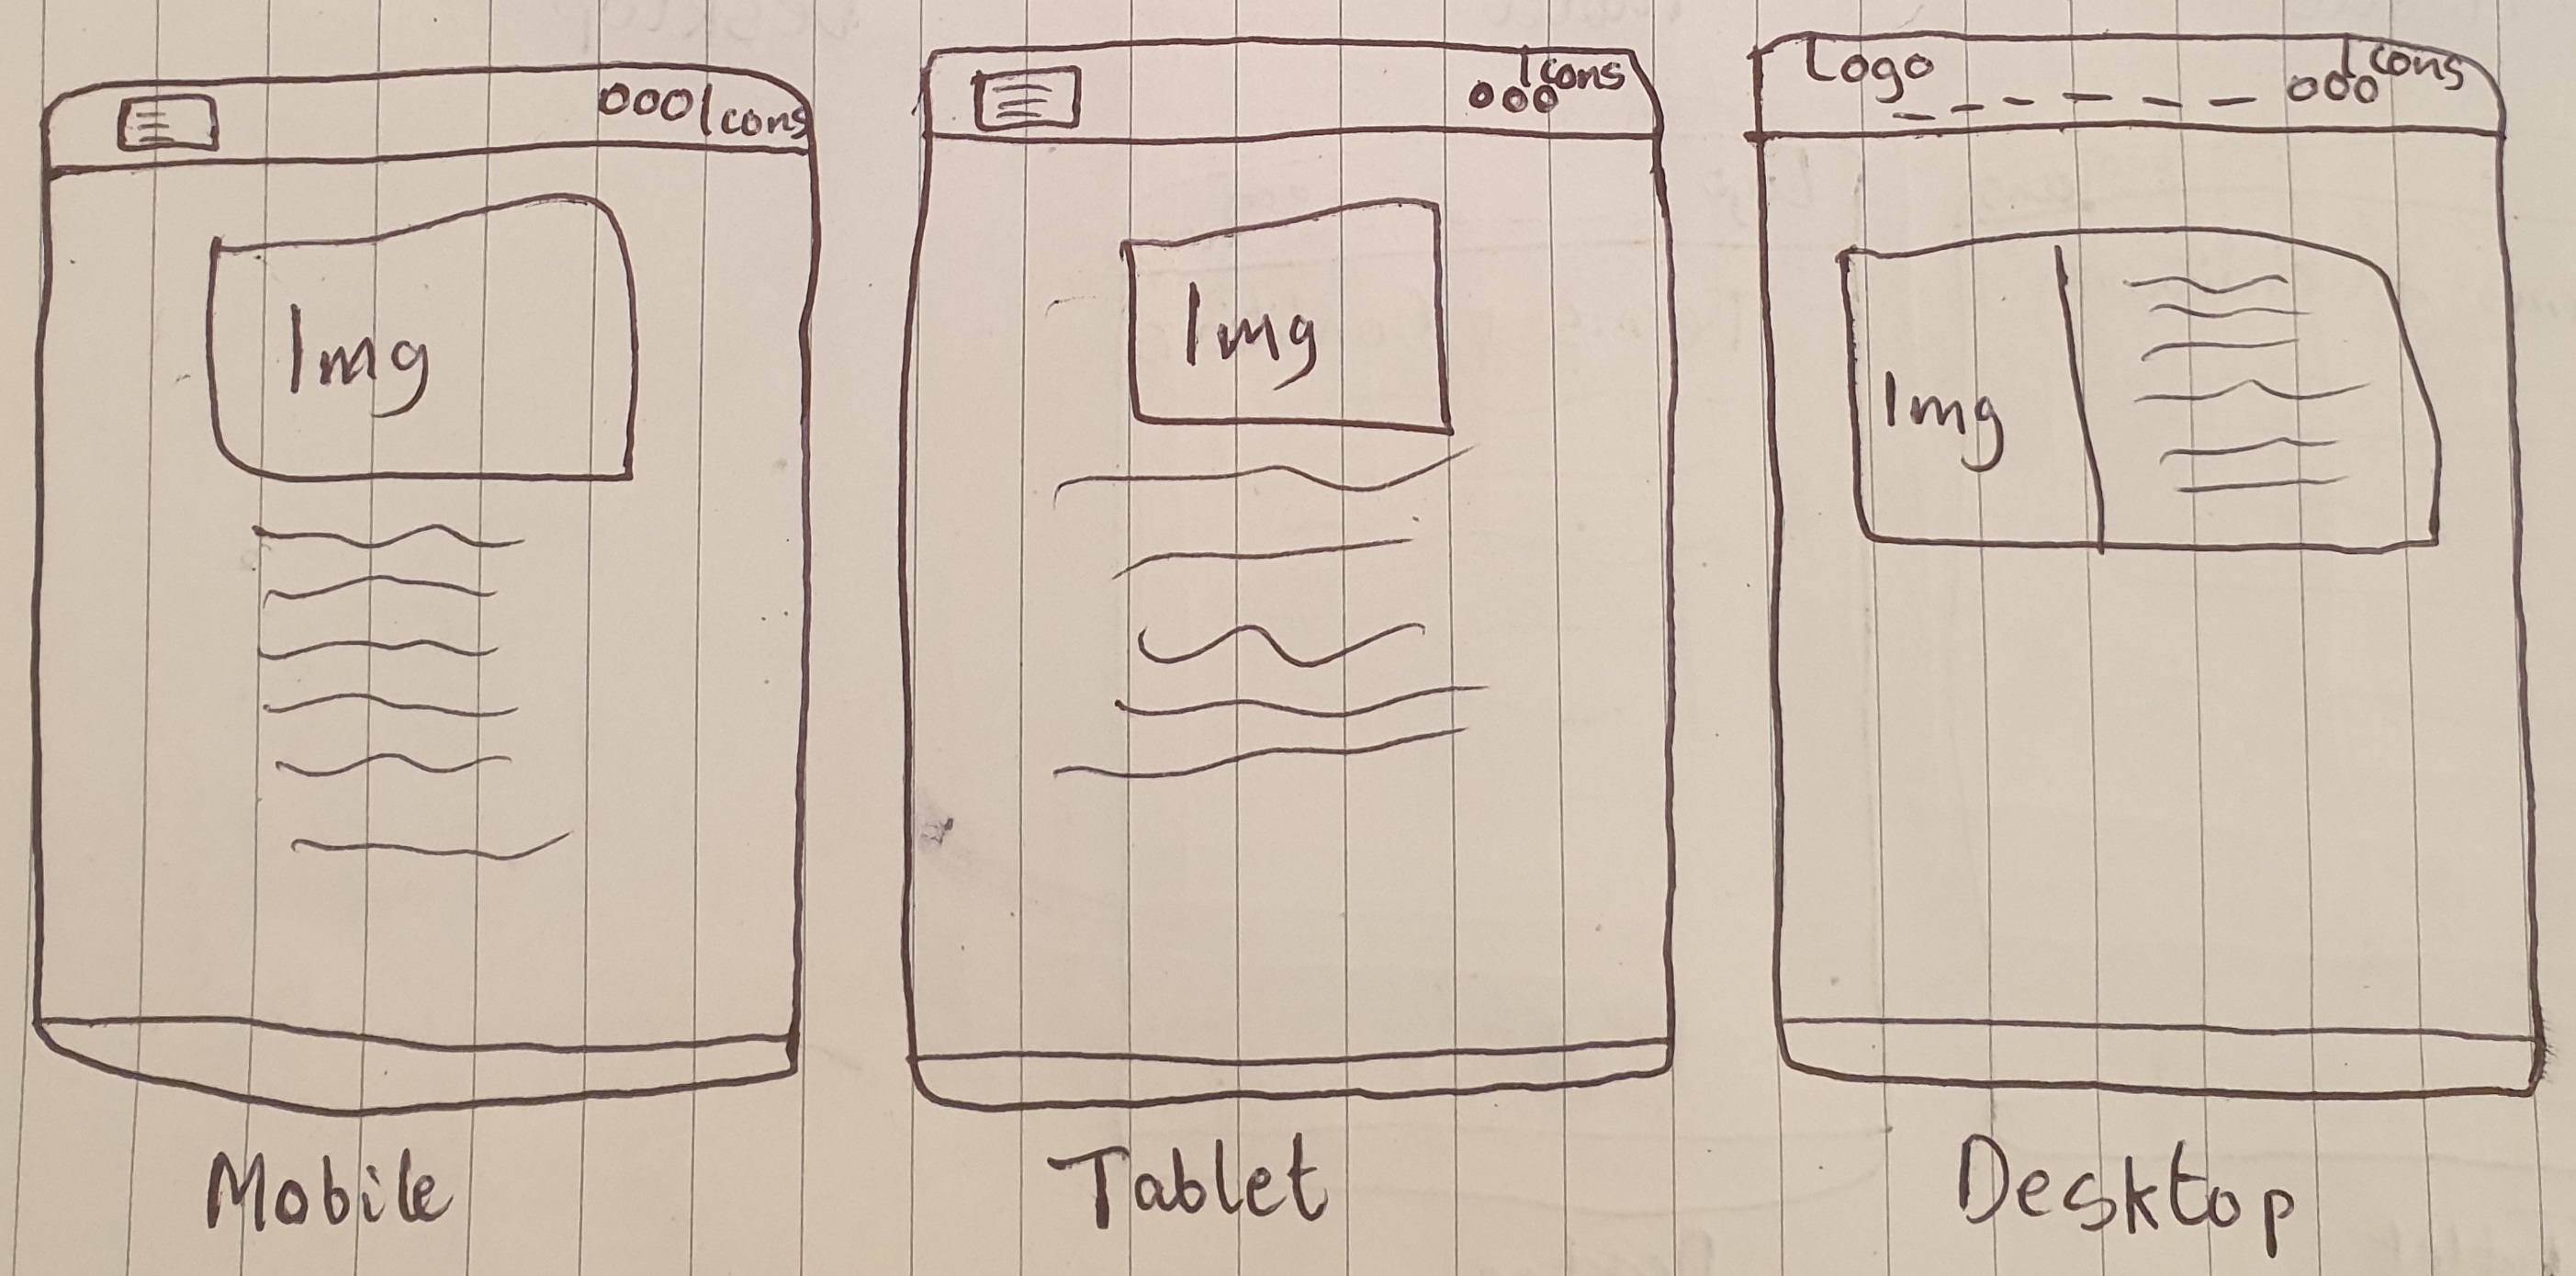 Icons
Img
Mobile
Icons
Img
Tablet
Logo
Icons
Img
Desktop